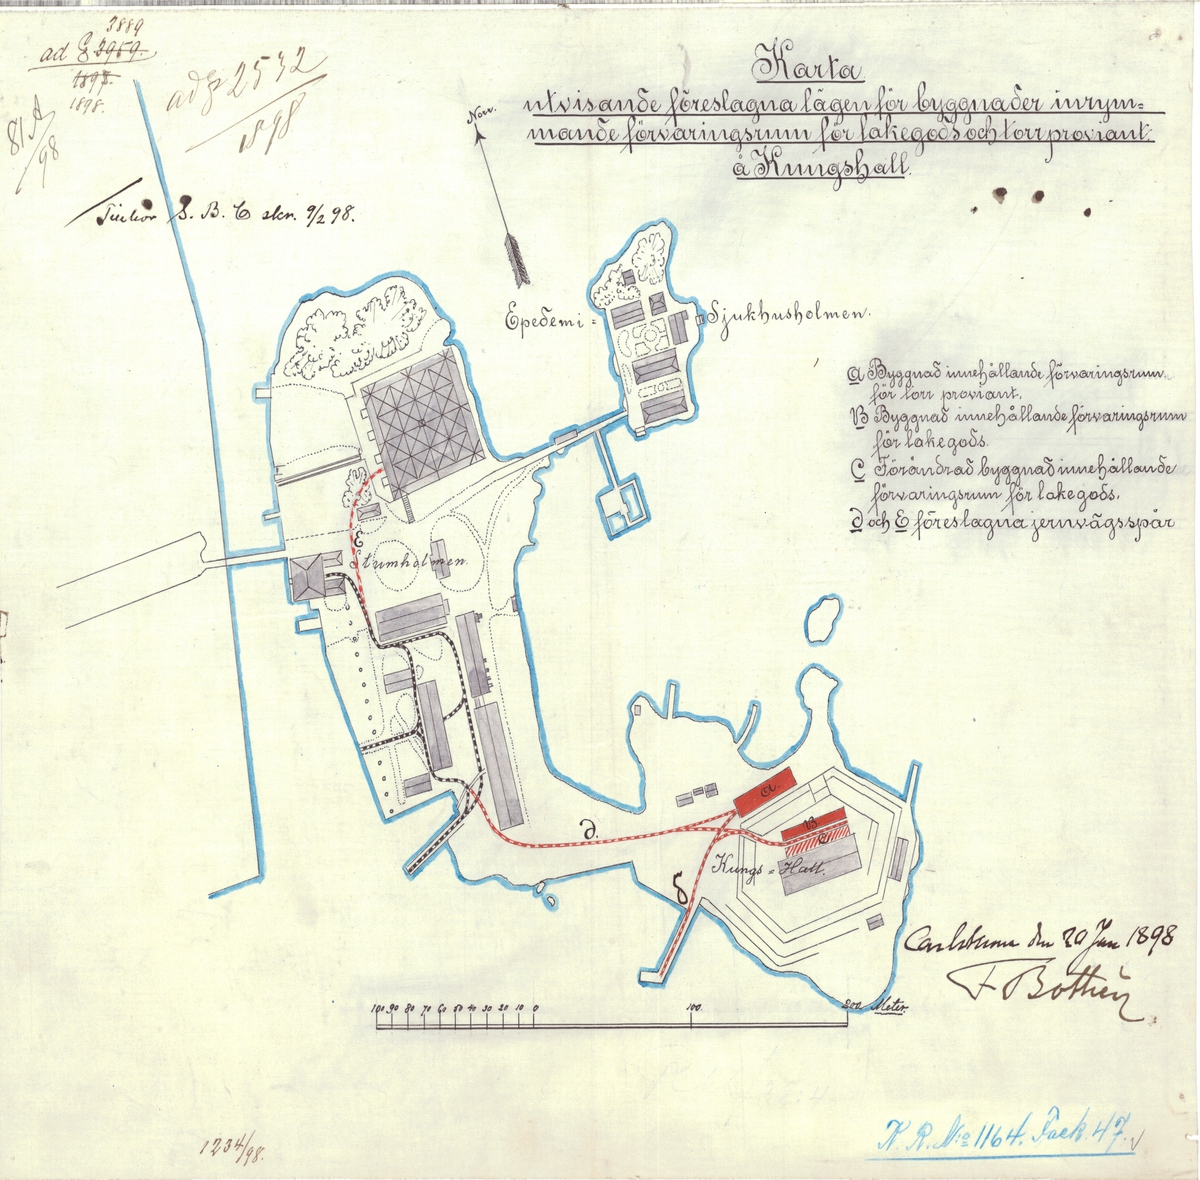 3889
ad 2969.
1897.
1898.
81 A
/98
2532
1898
Karta
utvisande föreslagna lägen för byggnader inrym=
mande förvaringsrum för lakegods och torr proviant
å Kungshall.
Norr.
S. B. skr. 9/2 98.
Epedemi = Sjukhusholmen.
a Byggnad innehållande förvaringsrum
för torr proviant.
B Byggnad innehållande förvaringsrum
för lakegods.
C Förändrad byggnad innehållande
förvaringsrum för lakegods.
d och E föreslagna jernvägsspår
E
Stumholmen.
a.
d.
B
C
Kungs = Hall.
Carlskrona den 20 Jan 1898
100 90 80 70 60 50 40 30 20 10 0 100. 200 Meter.
1234/98.
K. R. No 1164. Fack. 47.